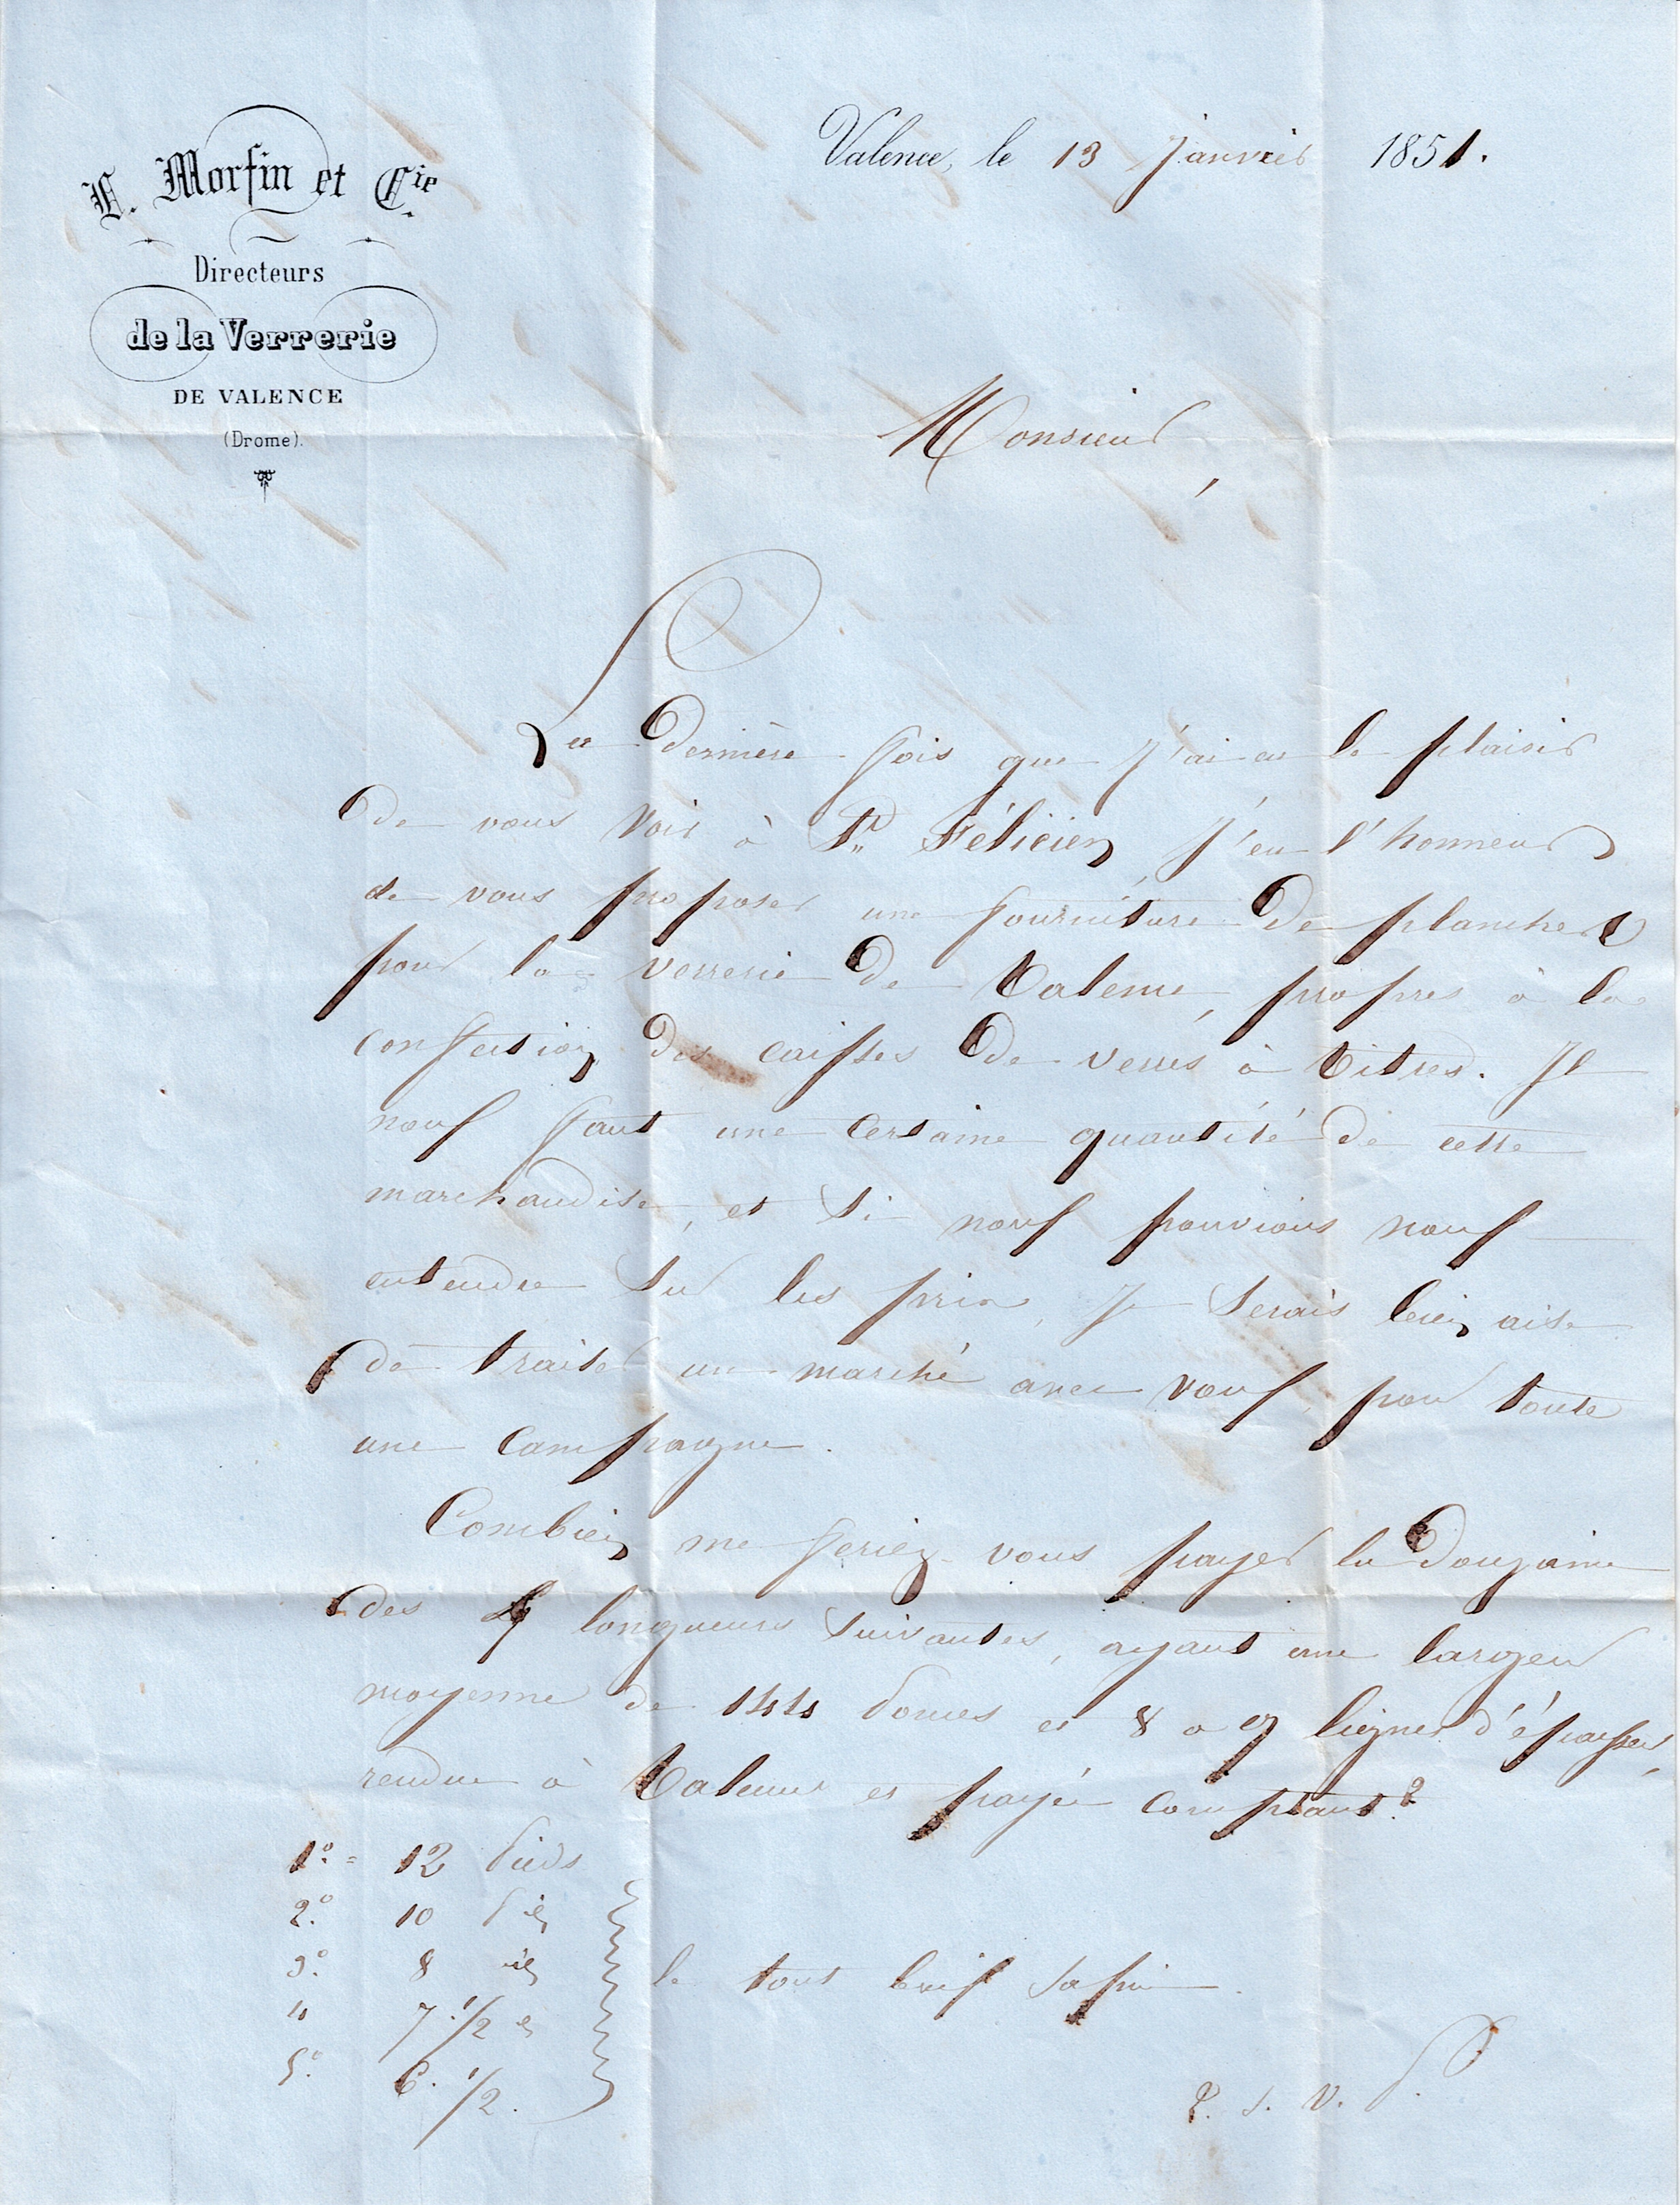 V. Morfin et Cie.
Directeurs
de la Verrerie
DE VALENCE
(Drome).
Valence, le 13 Janvier 1851.
Monsieur,
La dernière fois que j'ai eu le plaisir
de vous voir à St Félicien, j'eu l'honneur
de vous proposer une fourniture de planches
pour la verrerie de Valence, propres à la
confection des caisses de verres à vitres. Il
nous faut une certaine quantité de cette
marchandise, et si nous pouvions nous
entendre sur les prix, je serais bien aise
de traiter un marché avec vous, pour toute
une campagne.
Combien me feriez-vous payer la douzaine
des longueurs suivantes, ayant une largeur
moyenne de pouces et 8 à 9 lignes d'épaisseur,
rendue à Valence et payée comptant?
1º = 12 Pieds
2º. 10
3º. 8
4 7 1/2
5º. 6. 1/2.
le tout bois sapin.
T. S. V. P.